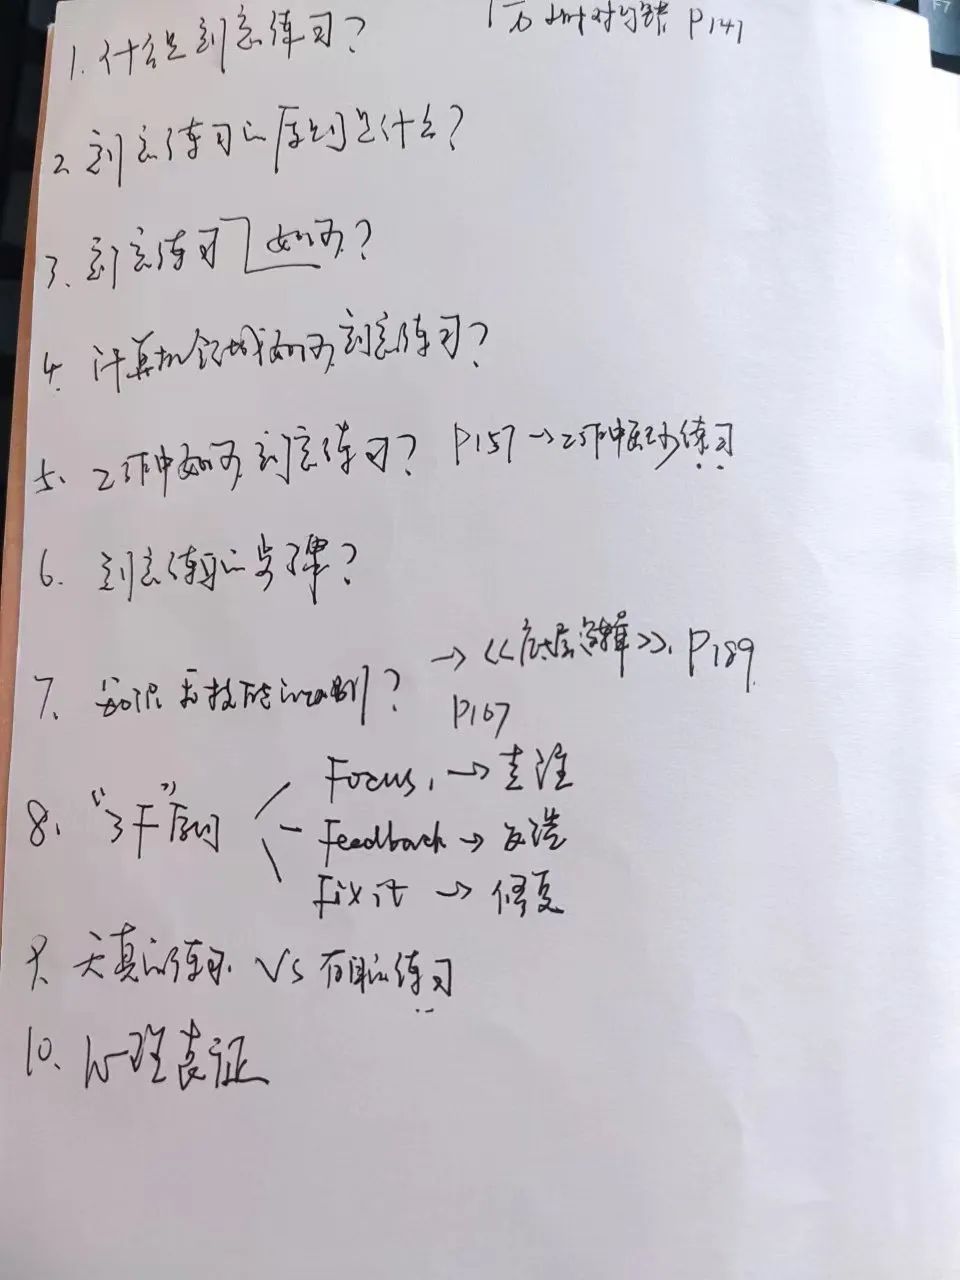 1万小时对与错 P141
1. 什么是刻意练习?
2. 刻意练习的原则是什么?
3. 刻意练习 如何?
4. 计算机领域如何刻意练习?
5. 工作中如何刻意练习? P157 → 工作中至少练习
6. 刻意练习的步骤?
7. 知识与技能的区别? → 《底层逻辑》. P189
P167
8. "3F"原则
Focus, → 专注
Feedback → 反馈
Fix it → 修复
9. 天真的练习 VS 有目的练习
10. 心理表征